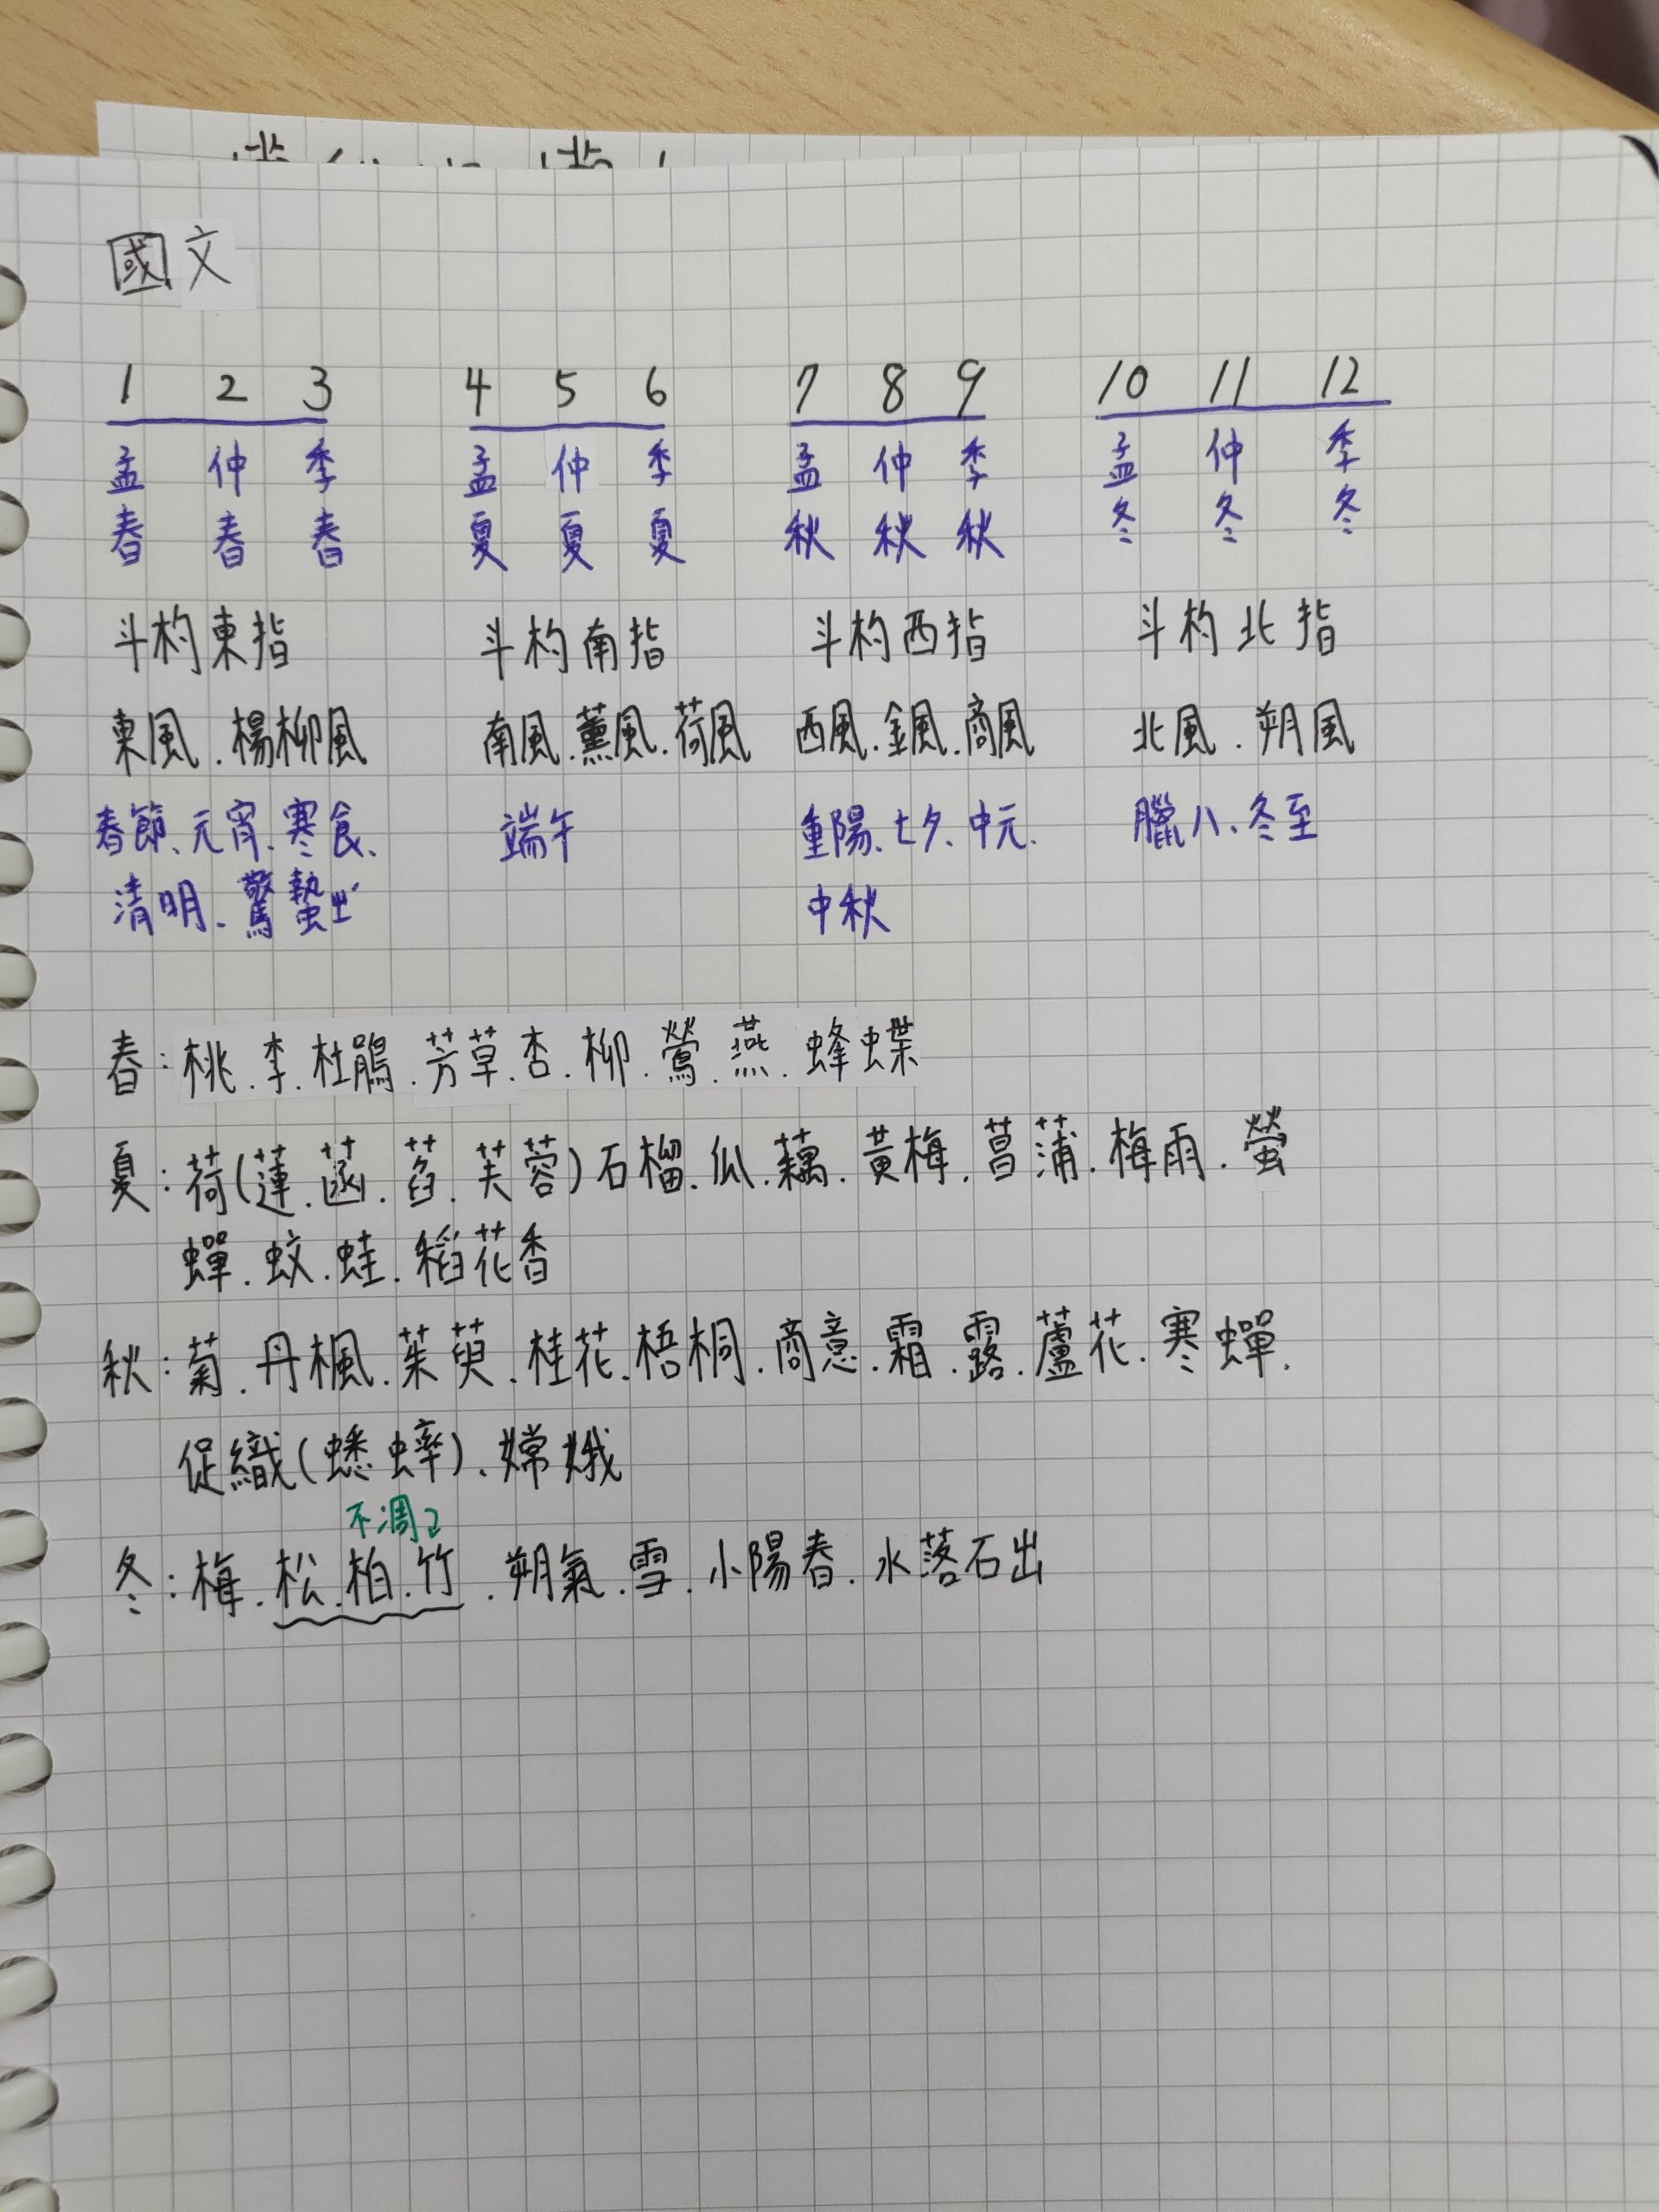 國文
1 2 3 4 5 6 7 8 9 10 11 12
孟 仲 季 孟 仲 季 孟 仲 季 孟 仲 季
春 春 春 夏 夏 夏 秋 秋 秋 冬 冬 冬
斗杓東指 斗杓南指 斗杓西指 斗杓北指
東風.楊柳風 南風.薰風.荷風 西風.金風.商風 北風.朔風
春節、元宵、寒食、 端午 重陽、七夕、中元、 臘八、冬至
清明、驚蟄 中秋
春:桃.李.杜鵑.芳草.杏.柳.鶯.燕.蜂蝶
夏:荷(蓮.菡.萏.芙蓉)石榴.瓜.藕.黃梅.菖蒲.梅雨.螢
蟬.蚊.蛙.稻花香
秋:菊.丹楓.茱萸.桂花.梧桐.商意.霜.露.蘆花.寒蟬.
促織(蟋蟀)、嫦娥
不凋
冬:梅.松.柏.竹.朔氣.雪.小陽春.水落石出